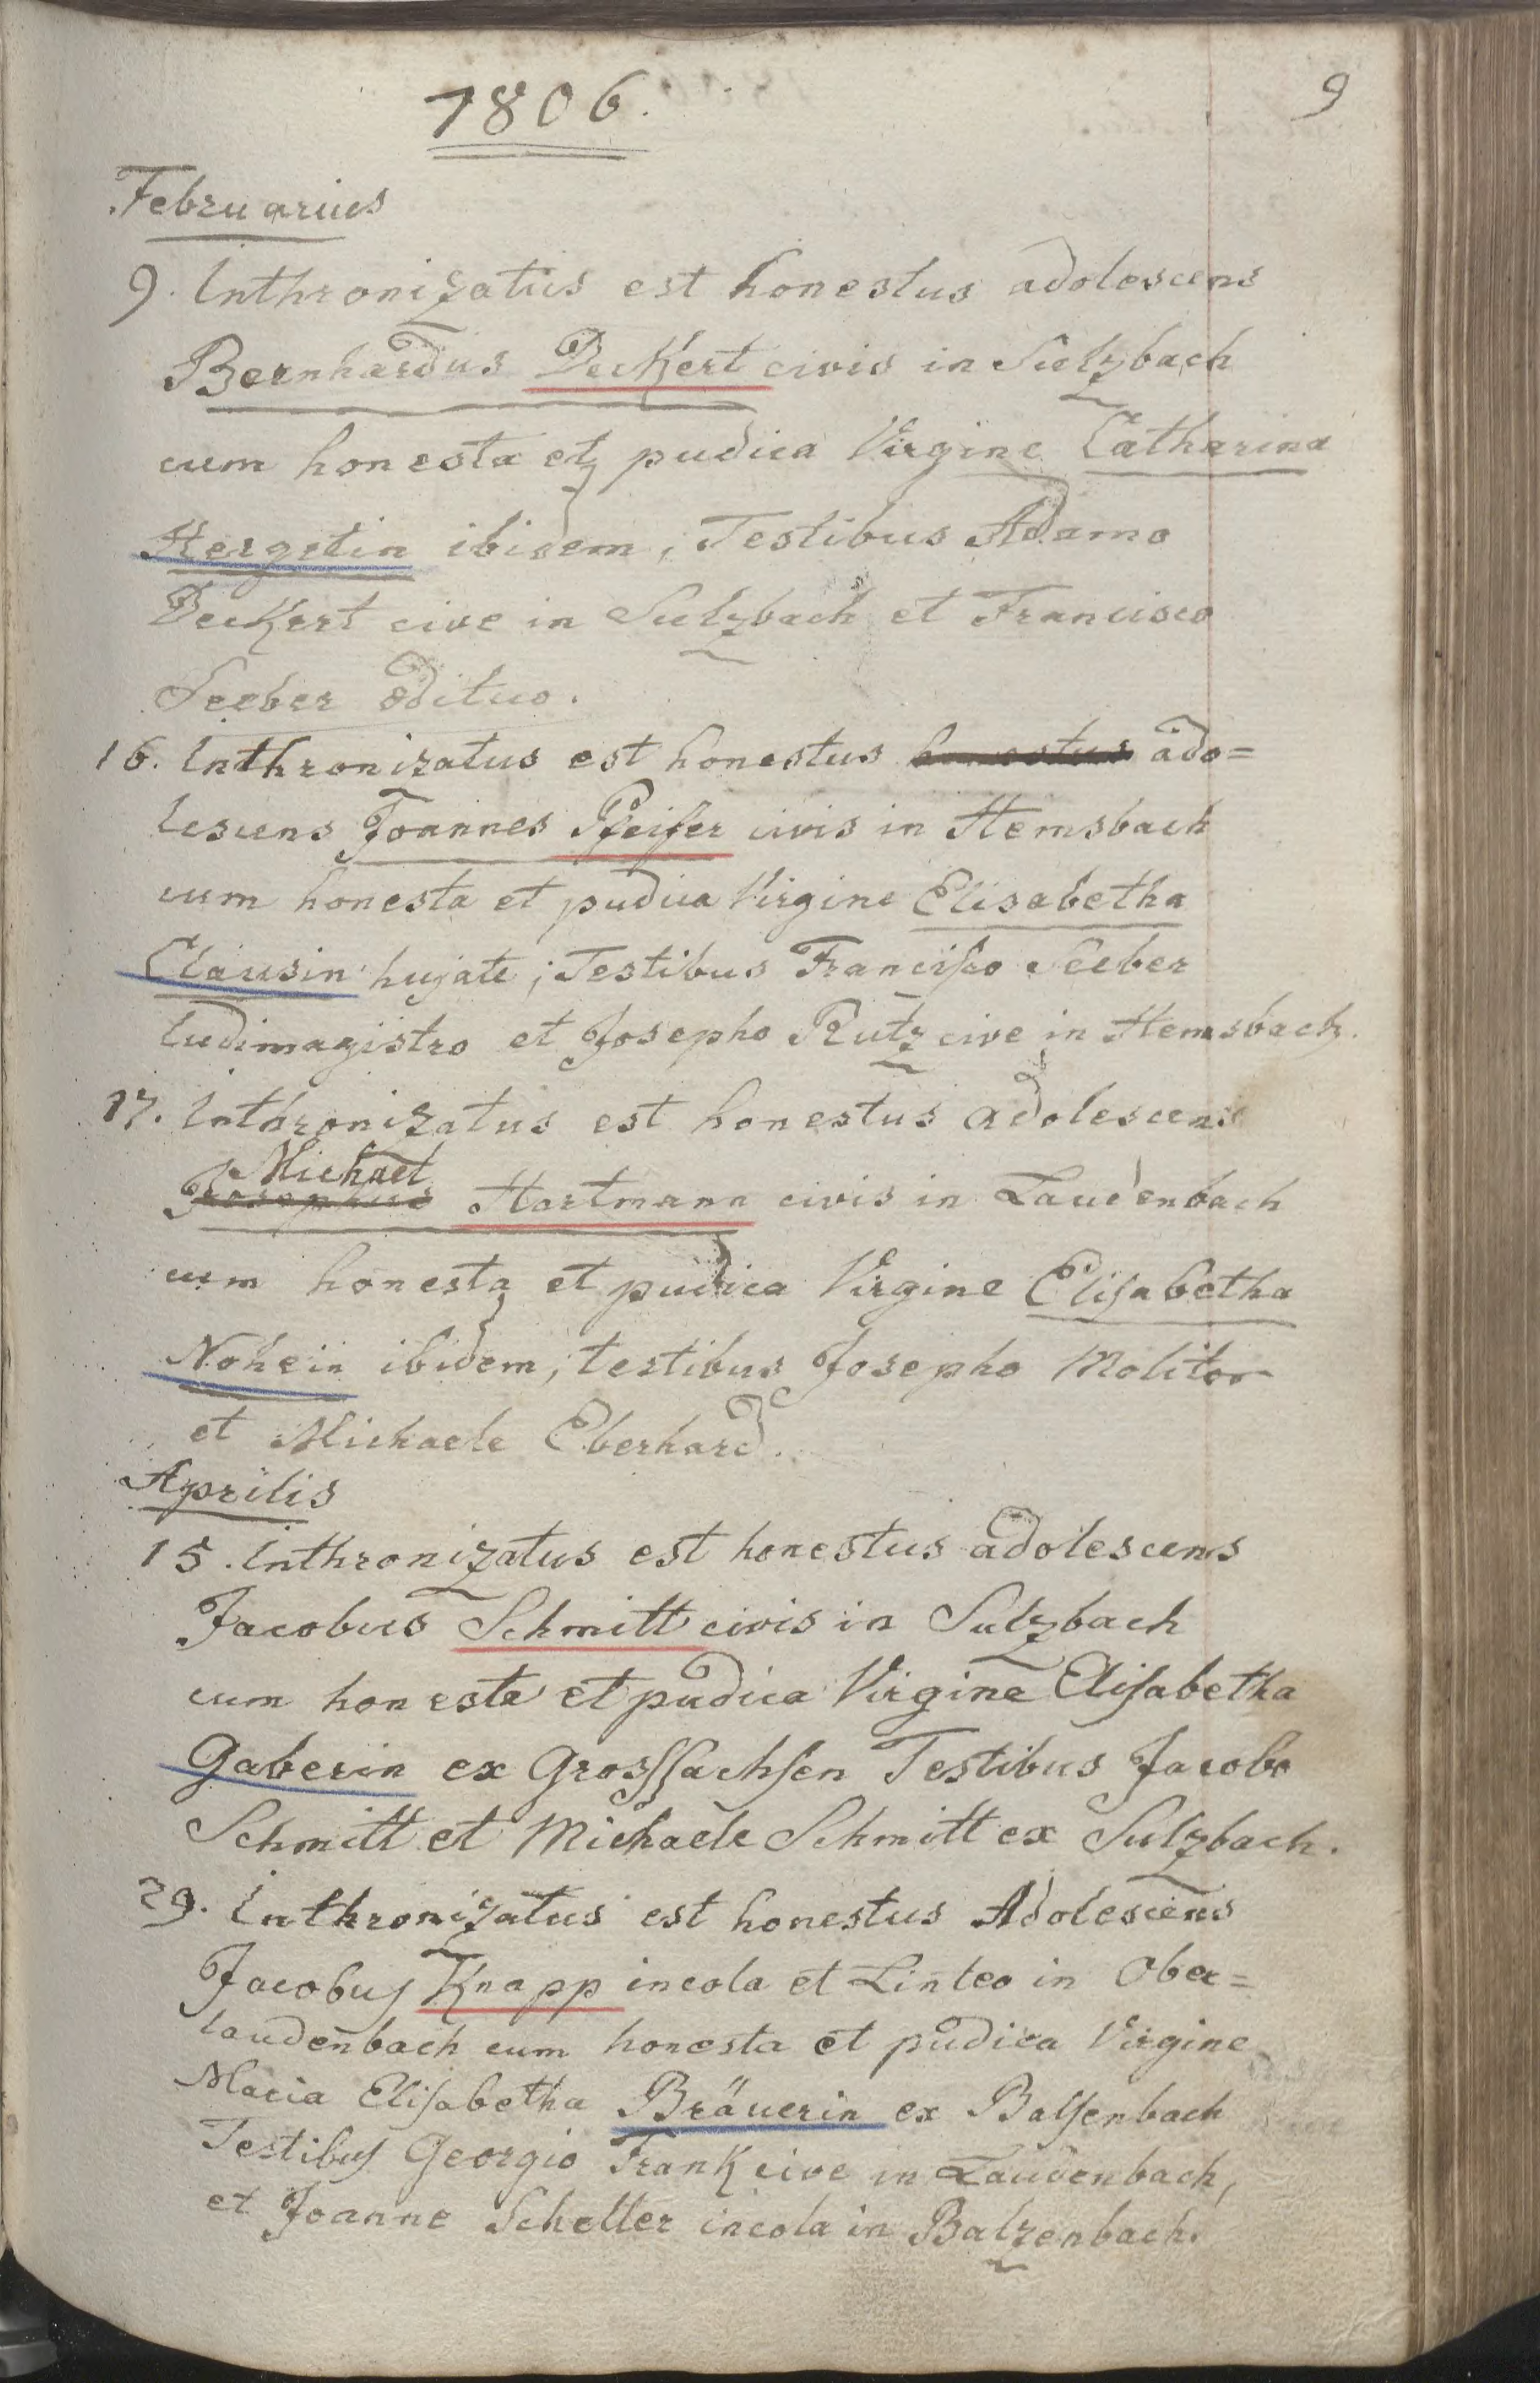 1806.
9
Februarius
9. Inthronizatus est honestus adolescens
Bernhardus Deckert civis in Sulzbach
cum honesta et pudica Virgine Catharina
Hergetin ibidem, Testibus Adamo
Deckert cive in Sulzbach et Francisco
Seeber ædituo.
16. Inthronizatus est honestus honestus ado=
lescens Joannes Pfeifer civis in Hemsbach
cum honesta et pudica Virgine Elisabetha
Clausin hujate; Testibus Franciſco Seeber
ludimagistro et Josepho Rutz cive in Hemsbach.
17. Inthronizatus est honestus adolescens
Michael
Josephus Hartmann civis in Laudenbach
cum honesta et pudica Virgine Eliſabetha
Nohein ibidem; testibus Josepho Molitor
et Michaele Eberhard.
Aprilis
15. Inthronizatus est honestus adolescens
Jacobus Schmitt civis in Sulzbach
cum honesta et pudica Virgine Eliſabetha
Gaberin ex Grosſſachſen Testibus Jacobo
Schmitt et Michaele Schmitt ex Sulzbach.
29. Inthronizatus est honestus Adolescens
Jacobuſ Knapp incola et Linteo in Ober=
laudenbach cum honesta et pudica Virgine
Maria Eliſabetha Bräuerin ex Balſenbach
Testibuſ Georgio Frank cive in Laudenbach,
et Joanne Scheller incola in Balzenbach.